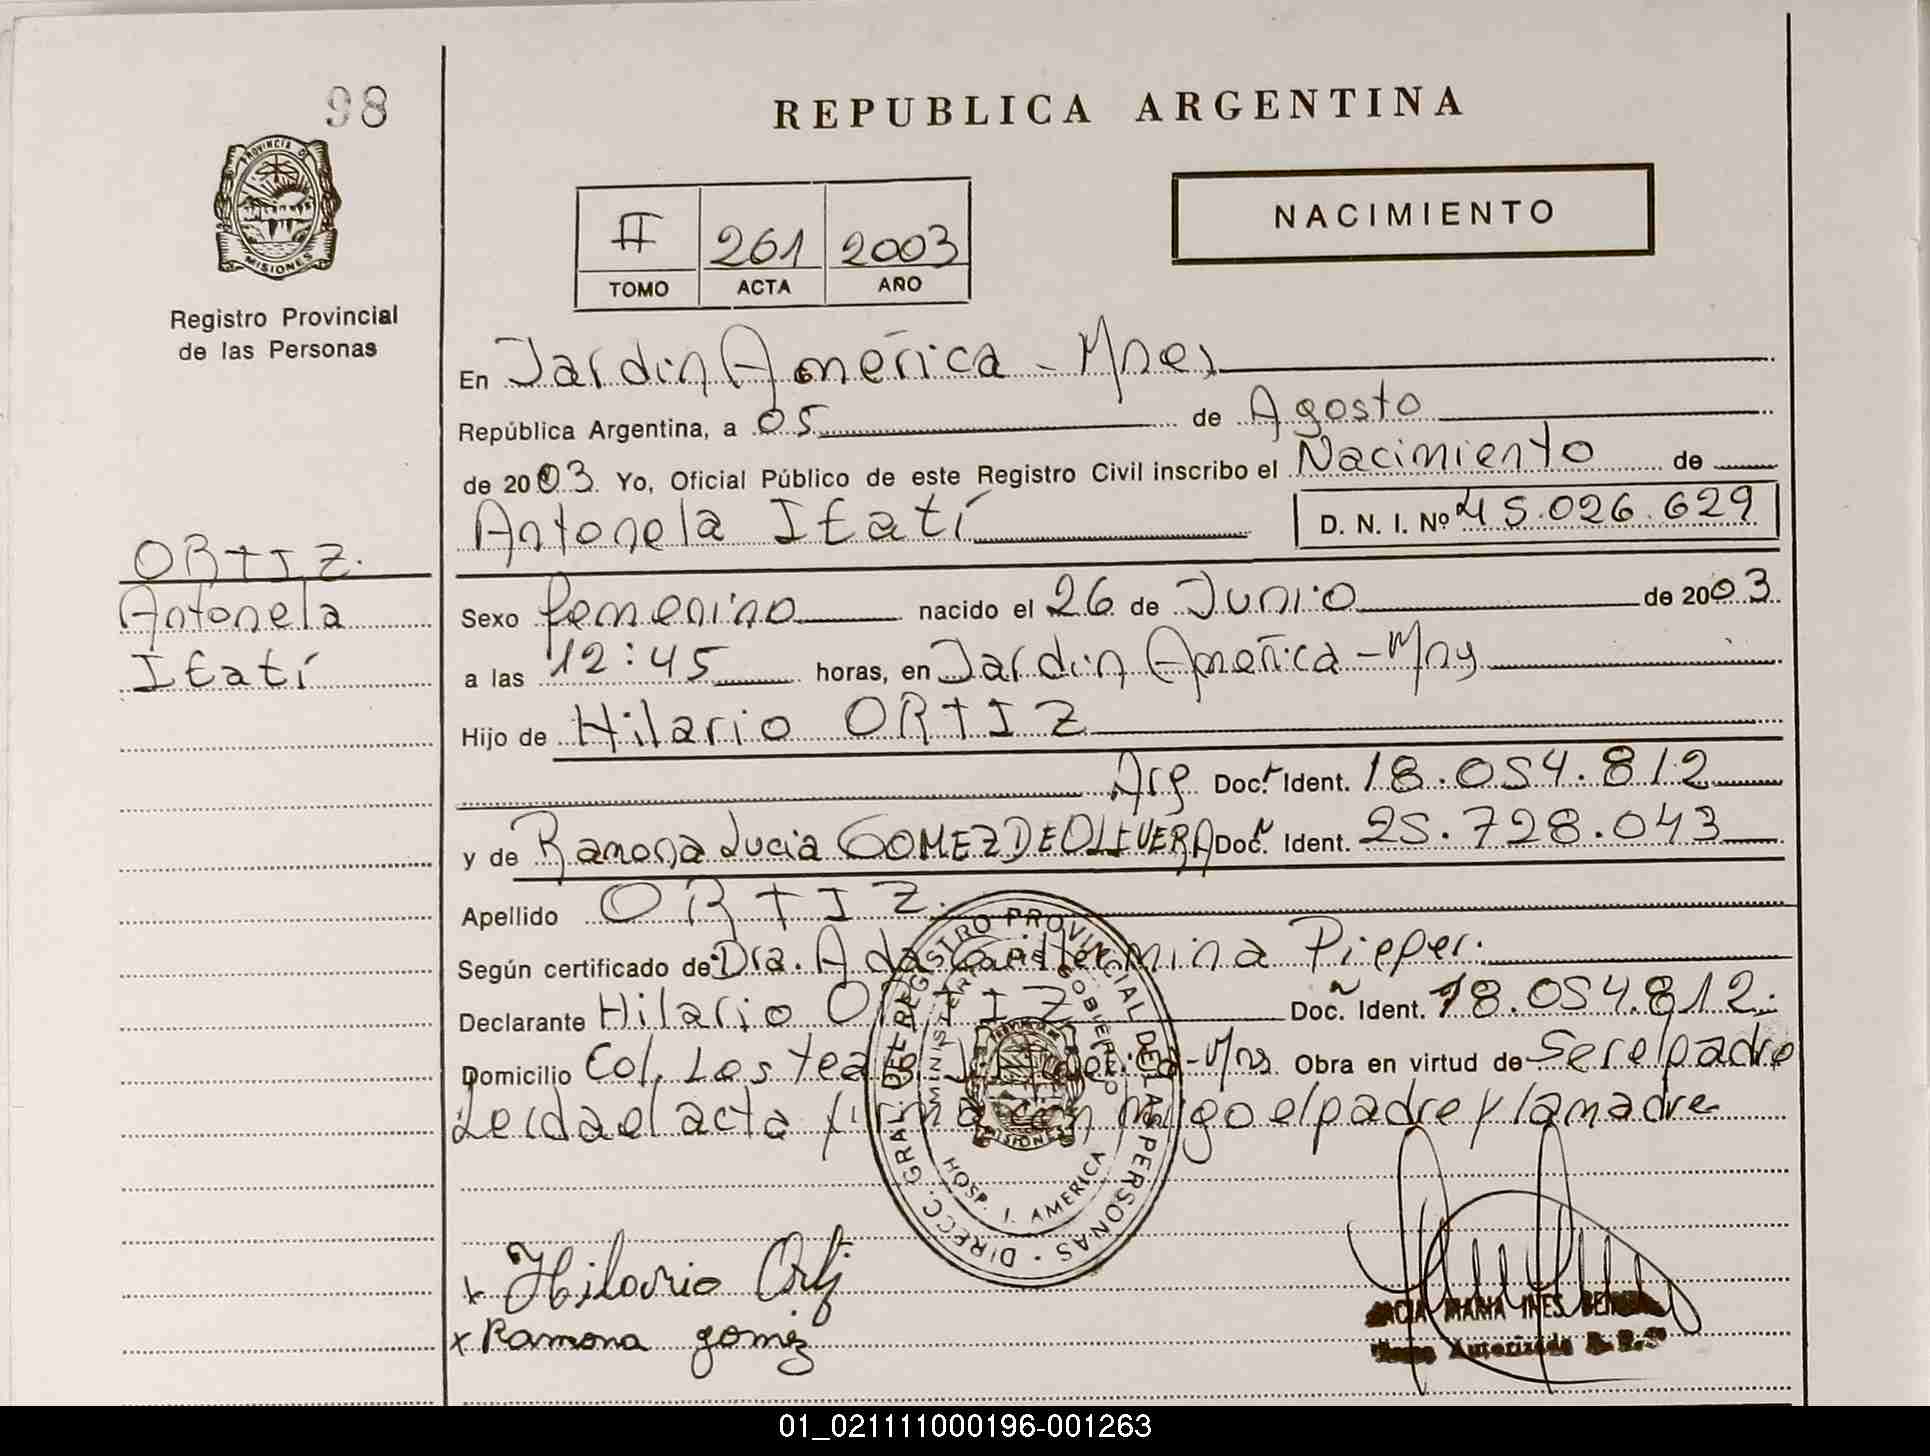 98
PROVINCIA D
MISIONES
Registro Provincial
de las Personas
ORTIZ.
Antonela
Itatí
REPUBLICA ARGENTINA
NACIMIENTO
II 261 2003
TOMO ACTA AÑO
En Jardin América - Mnes
República Argentina, a 05 de Agosto
de 2003. Yo, Oficial Público de este Registro Civil inscribo el Nacimiento de
Antonela Itatí D. N. I. Nº 45.026.629
Sexo femenino nacido el 26 de Junio de 2003
a las 12:45 horas, en Jardin América - Mns
Hijo de Hilario ORTIZ
Arg Doc. Ident. 18.054.812
y de Ramona Lucia GOMEZ DE OLIVERA Doc. Ident. 25.728.043
Apellido ORTIZ.
Según certificado de: Dra. Ada Pieper.
Declarante Hilario ORTIZ Doc. Ident. 18.054.812.
Domicilio Col. Los Teales J. América - Mns Obra en virtud de Ser el padre
Leida el acta firma conmigo el padre y la madre
DIRECC. GRAL. DEL REGISTRO PROVINCIAL DE LAS PERSONAS
MINISTERIO GOBIERNO
MISIONES
HOSP. J. AMERICA
x Hilario Ortiz
x Ramona gomez
MARIA INES
Autorizada
01_021111000196-001263